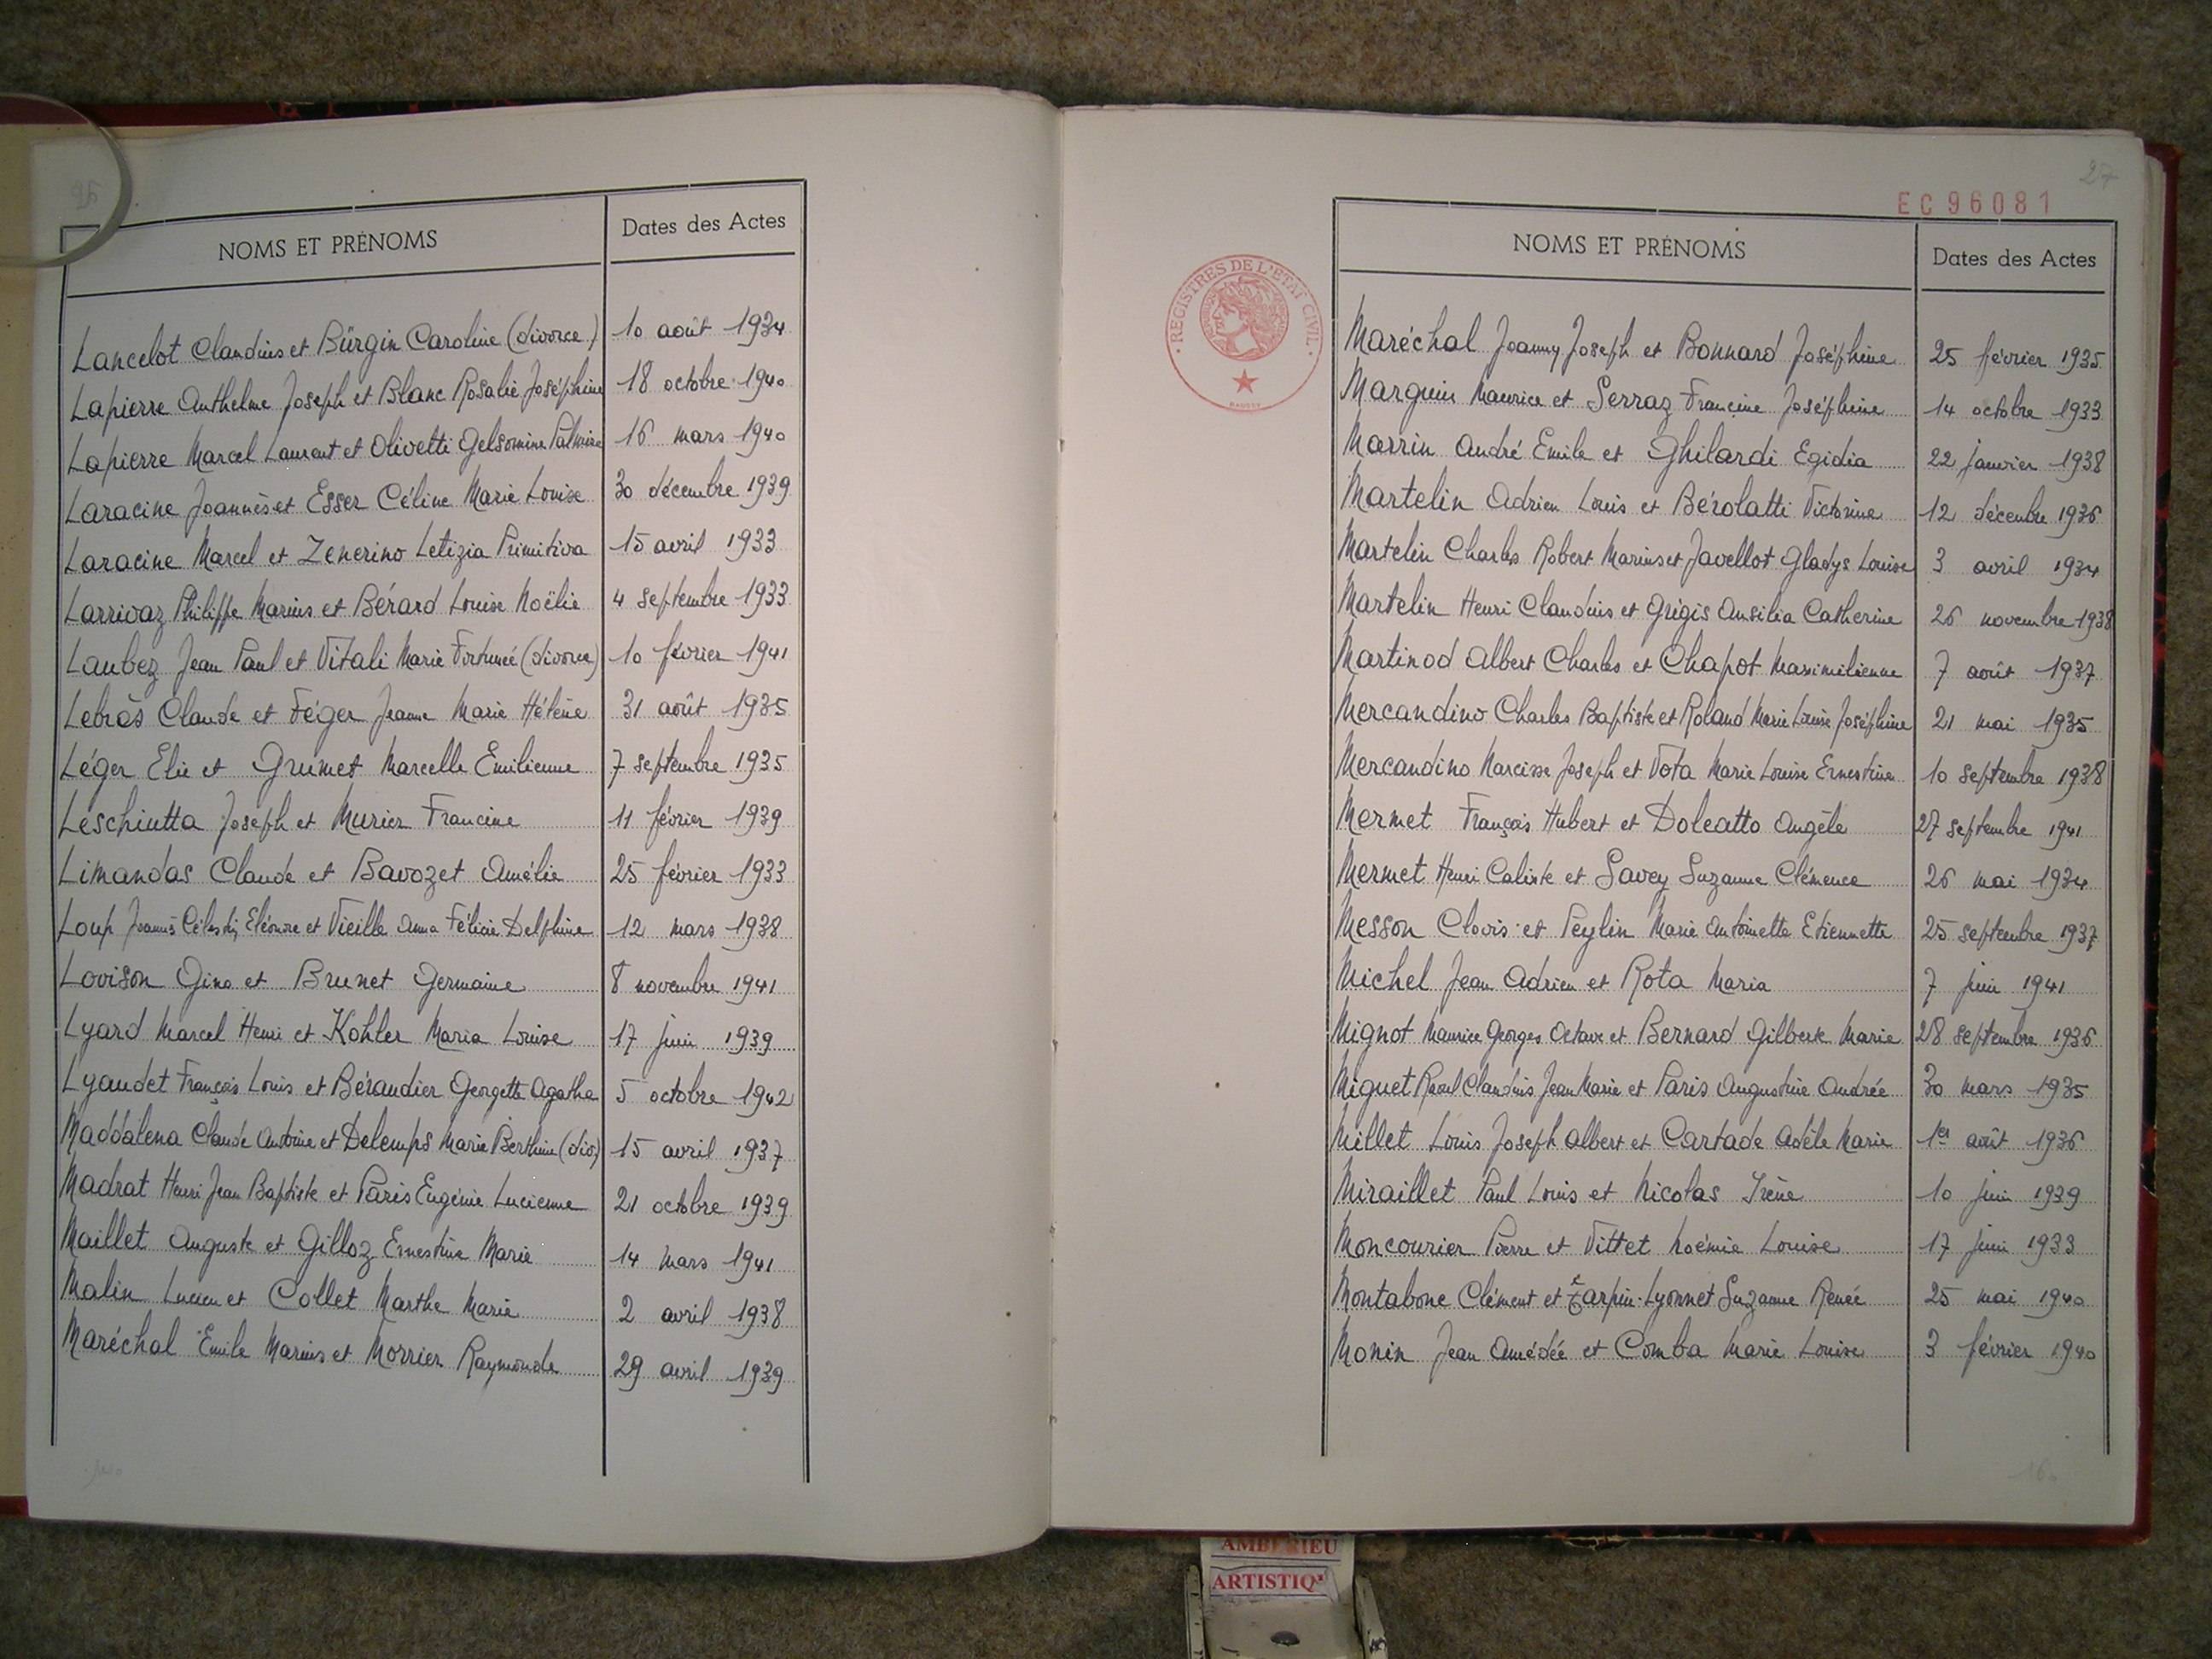 NOMS ET PRÉNOMS Dates des Actes
Lancelot Claudius et Bürgin Caroline (divorce) 10 août 1934
Lapierre Anthelme Joseph et Blanc Rosalie Joséphine 18 octobre 1940
Lapierre Marcel Laurent et Olivetti Gelsomine Palmire 16 mars 1940
Laracine Joannès et Esser Céline Marie Louise 30 décembre 1939
Laracine Marcel et Zenerino Letizia Primitiva 15 avril 1933
Larrivaz Philippe Marius et Bérard Louise Noëlie 4 septembre 1933
Laubez Jean Paul et Vitali Marie Fortunée (divorce) 10 février 1941
Lebràs Claude et Féger Jeanne Marie Hélène 31 août 1935
Léger Elie et Grumet Marcelle Emilienne 7 septembre 1935
Leschiutta Joseph et Murier Francine 11 février 1939
Limandas Claude et Bavozet Amélie 25 février 1933
Loup Joannès Célestin Eléonore et Vieille Anna Félicie Delphine 12 mars 1938
Lovison Gino et Brunet Germaine 8 novembre 1941
Lyard Marcel Henri et Kohler Maria Louise 17 juin 1939
Lyaudet François Louis et Béraudier Georgette Agatha 5 octobre 1942
Maddalena Claude Antoine et Delemps Marie Berthine (div) 15 avril 1937
Madrat Henri Jean Baptiste et Paris Eugénie Lucienne 21 octobre 1939
Maillet Auguste et Gilloz Ernestine Marie 14 mars 1941
Malin Lucien et Collet Marthe Marie 2 avril 1938
Maréchal Emile Marius et Morrier Raymonde 29 avril 1939
27
EC96081
REGISTRES DE L'ETAT CIVIL
NOMS ET PRÉNOMS Dates des Actes
Maréchal Joanny Joseph et Bonnard Joséphine 25 février 1935
Marguin Maurice et Serraz Francine Joséphine 14 octobre 1933
Marrin André Emile et Ghilardi Egidia 22 janvier 1938
Martelin Adrien Louis et Bérolatti Victorine 12 décembre 1936
Martelin Charles Robert Marius et Javellot Gladys Louise 3 avril 1934
Martelin Henri Claudius et Grigis Ausilia Catherine 26 novembre 1938
Martinod Albert Charles et Chapot Maximilienne 7 août 1937
Mercandino Charles Baptiste et Roland Marie Louise Joséphine 21 mai 1935
Mercandino Narcisse Joseph et Vota Marie Louise Ernestine 10 septembre 1938
Mermet François Hubert et Doleatto Angèle 27 septembre 1941
Mermet Henri Calixte et Savey Suzanne Clémence 26 mai 1934
Messon Clovis et Peylin Marie Antoinette Etiennette 25 septembre 1937
Michel Jean Adrien et Rota Maria 7 juin 1941
Mignot Maurice Georges Octave et Bernard Gilberte Marie 28 septembre 1936
Miguet Raoul Claudius Jean Marie et Paris Augustine Andrée 30 mars 1935
Millet Louis Joseph Albert et Cartade Adèle Marie 1er août 1936
Miraillet Paul Louis et Nicolas Irène 10 juin 1939
Moncourier Pierre et Vittet Noémie Louise 17 juin 1933
Montabone Clément et Tarpin-Lyonnet Suzanne Renée 25 mai 1940
Monin Jean Amédée et Comba Marie Louise 3 février 1940
AMBERIEU
ARTISTIQ